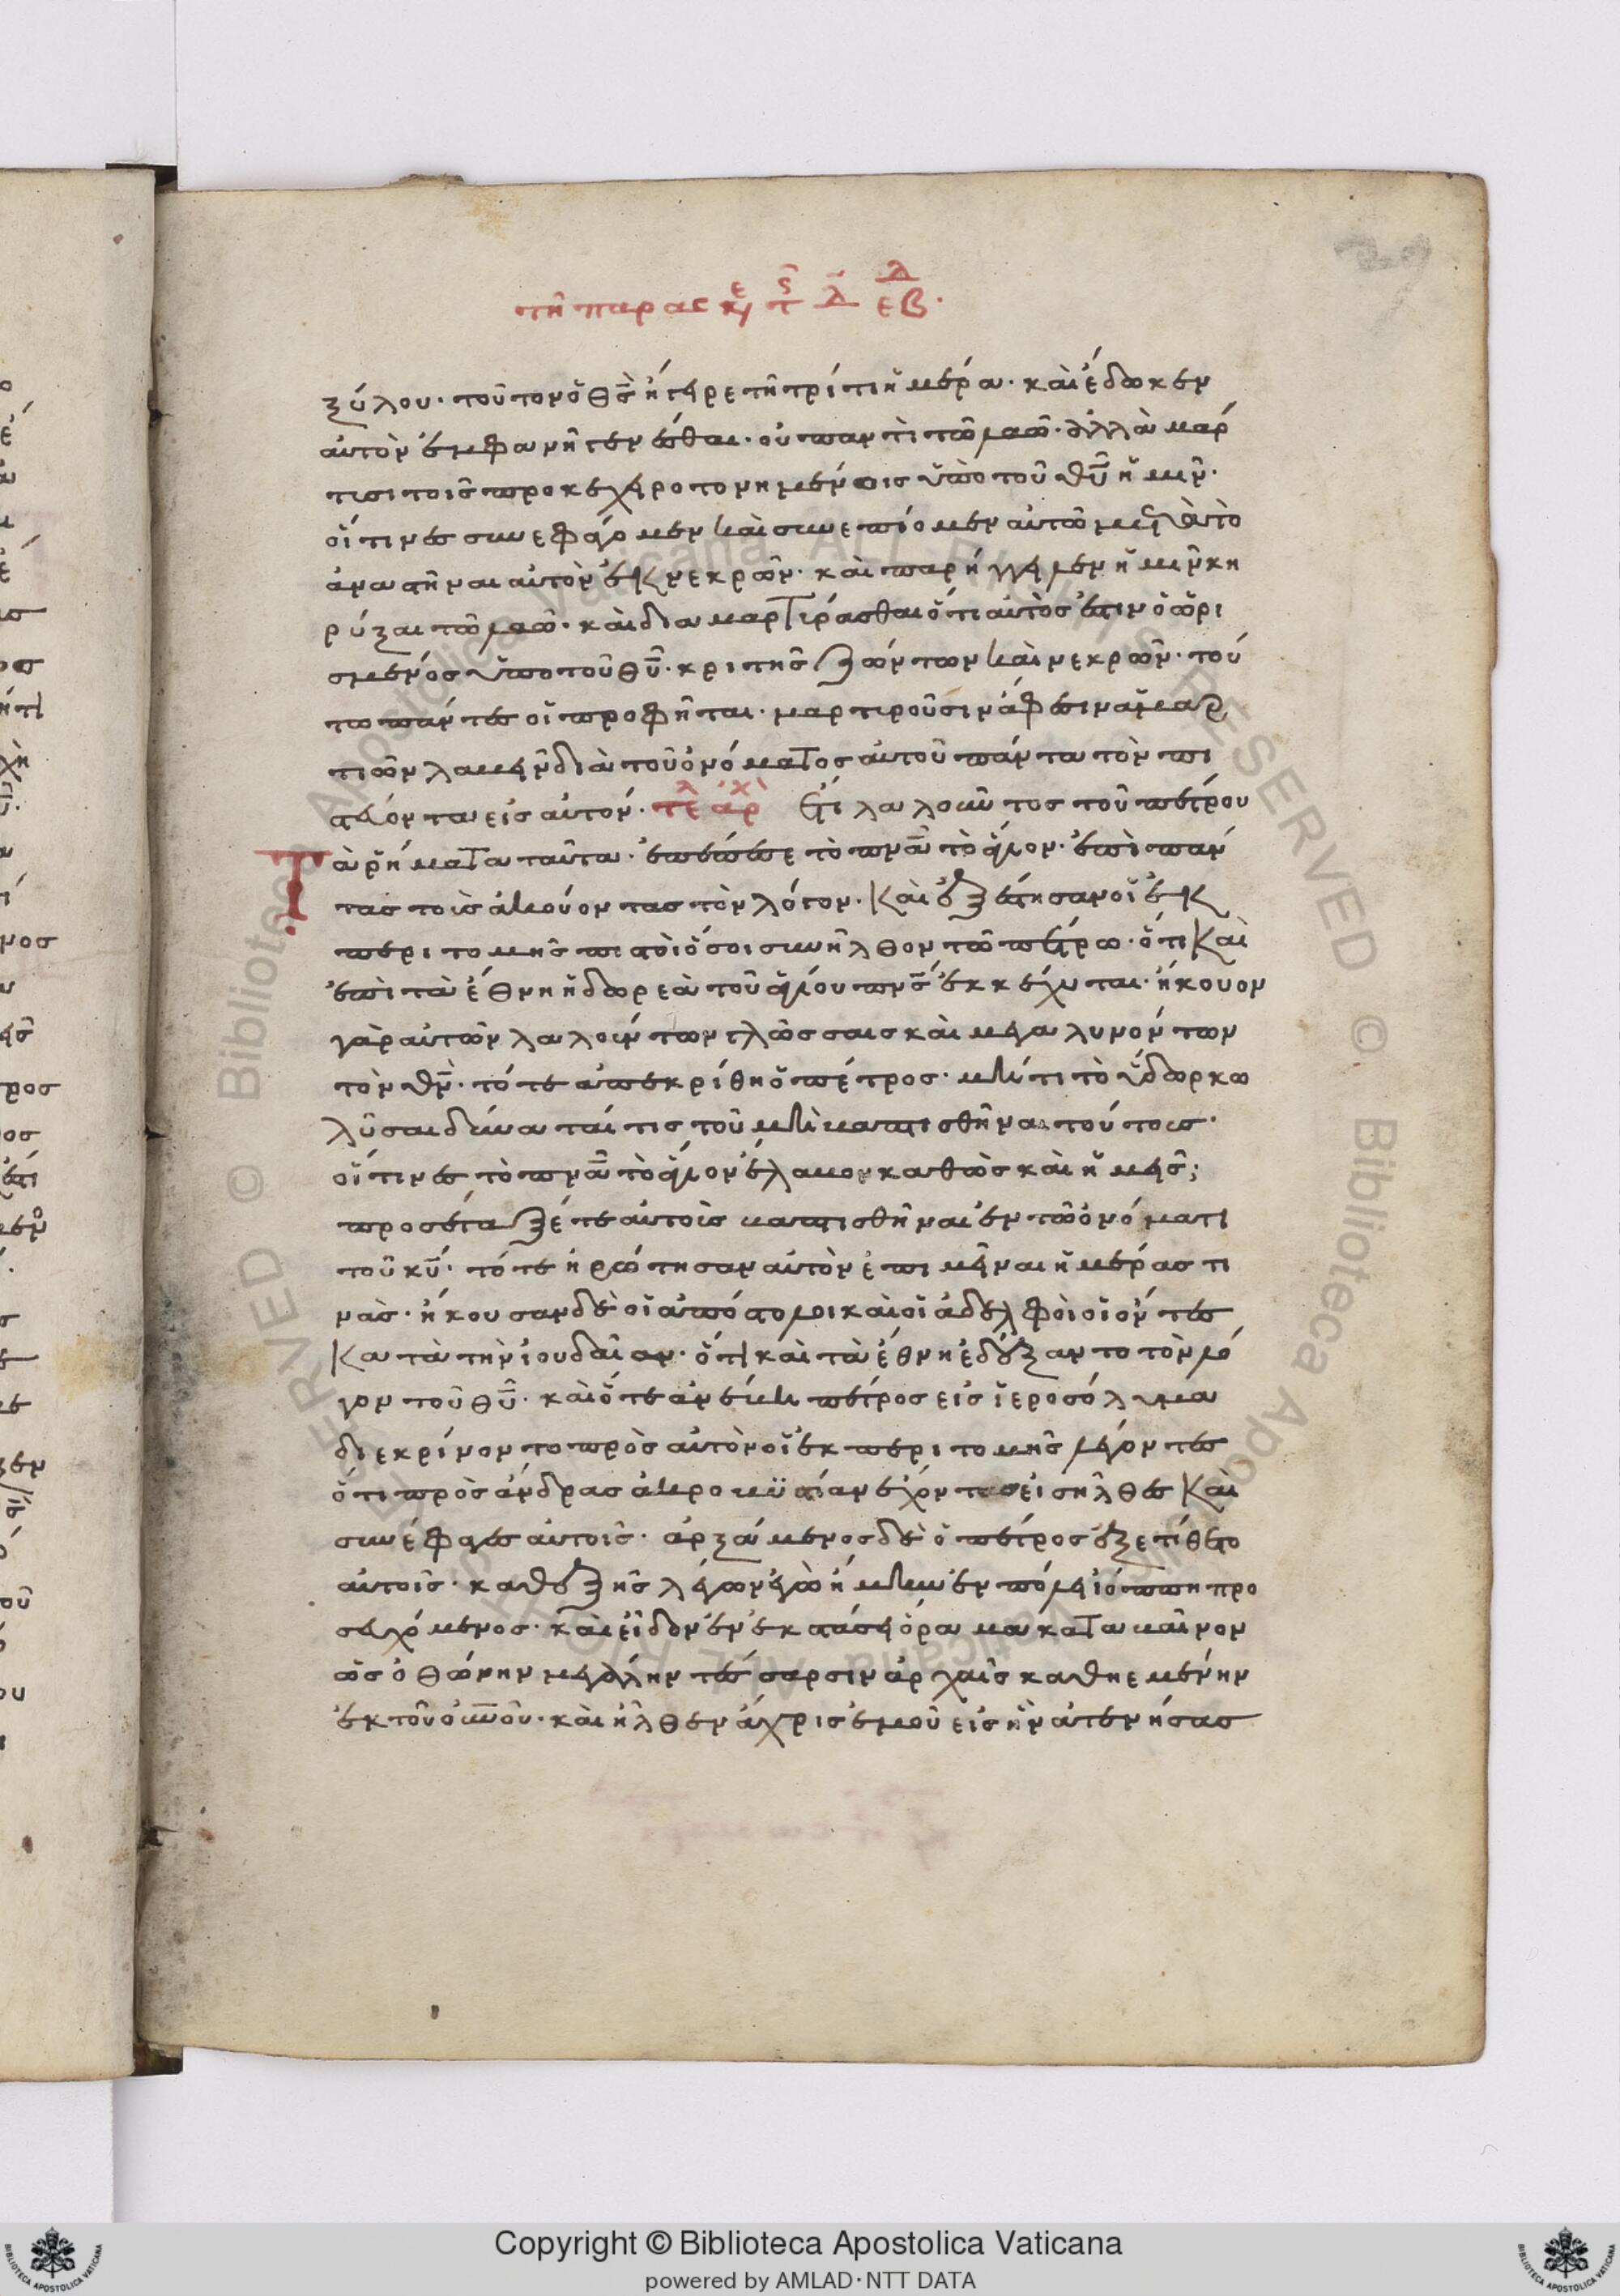 τῆ παρασκε ϛ τ δ̅ εβδ·
ξύλου· τοῦτον ὁ θς̅ ἤγειρε τῆ τρίτη ἡμέρα· καὶ ἔδωκεν
αὐτὸν ἐμφανῆ γενέσθαι· οὐ παντὶ τῶ λαῶ· ἀλλὰ μάρ
τισι τοῖς προκεχειροτονημένοις ὑπὸ τοῦ θυ̅ ἡμῖν·
οἵτινες συνεφάγομεν καὶ συνεπίομεν αὐτῶ μετὰ τὸ
ἀναστῆναι αὐτὸν ἐκ νεκρῶν· καὶ παρήγγειλεν ἡμῖν κη
ρύξαι τῶ λαῶ· καὶ διαμαρτύρασθαι ὅτι αὐτὸς ἐστιν ὁ ὡρι
σμένος ὑπὸ τοῦ θυ̅· κριτῆς ζώντων καὶ νεκρῶν· τού
τω πάντες οἱ προφῆται· μαρτιροῦσιν ἄφεσιν ἁμαρ
τιῶν λαμεῖν διὰ τοῦ ὀνόματος αὐτοῦ πάντα τὸν πι
στεύοντα εἰς αὐτόν· τελ ἀρχ Ἔτι λαλοῦντος τοῦ πέτρου
Τὰ ῥήματα ταῦτα· ἐπέπεσε τὸ πνα̅ τὸ ἅγιον· ἐπὶ πάν
τας τοὺς ἀκούοντας τὸν λόγον· καὶ ἐξέστησαν οἱ ἐκ
περιτομῆς πιστοὶ ὅσοι συνῆλθον τῶ πέτρω· ὅτι καὶ
ἐπὶ τὰ ἔθνη ἡ δωρεὰ τοῦ ἁγίου πνς̅ ἐκκέχυται· ἤκουον
γὰρ αὐτῶν λαλούντων γλῶσσαις καὶ μεγαλυνόντων
τὸν θν̅· τότε ἀπεκρίθη ὁ πέτρος· μήτι τὸ ὕδωρ κω
λῦσαι δύναταί τις τοῦ μὴ βαπτισθῆναι τούτους·
οἵτινες τὸ πνα̅ τὸ ἅγιον ἔλαβον καθὼς καὶ ἡμεῖς;
προσέταξέ τε αὐτοὺς βαπτισθῆναι ἐν τῶ ὀνόματι
τοῦ κυ̅· τότε ἠρώτησαν αὐτὸν ἐπιμεῖναι ἡμέρας τι
νὰς· ἤκουσαν δὲ οἱ ἀπόστολοι καὶ οἱ ἀδελφοὶ οἱ ὄντες
κατὰ τὴν ἰουδαῖαν· ὅτι καὶ τὰ ἔθνη ἐδέξαντο τὸν λό
γον τοῦ θυ̅· καὶ ὅτε ἀνέβη πέτρος εἰς ἱεροσόλυμα
διεκρίνοντο πρὸς αὐτὸν οἱ ἐκ περιτομῆς λέγοντες
ὅτι πρὸς ἄνδρας ἀκροβυστίαν ἔχοντας εἰσῆλθες καὶ
συνέφαγες αὐτοῖς· ἀρξάμενος δὲ ὁ πέτρος ἐξετίθετο
αὐτοῖς· καθεξῆς λέγων ἐγὼ ἤμην ἐν πόλει ἰόππη προ
σευχόμενος· καὶ εἶδον ἐν ἐκστάσει ὅραμα καταβαῖνον
ὡς ὀθώνην μεγάλην τέσσαρσιν ἀρχαῖς καθηεμένην
ἐκ τοῦ οὐνου̅· καὶ ἦλθεν ἄχρις ἐμοῦ εἰς ἣν ἀτενήσας